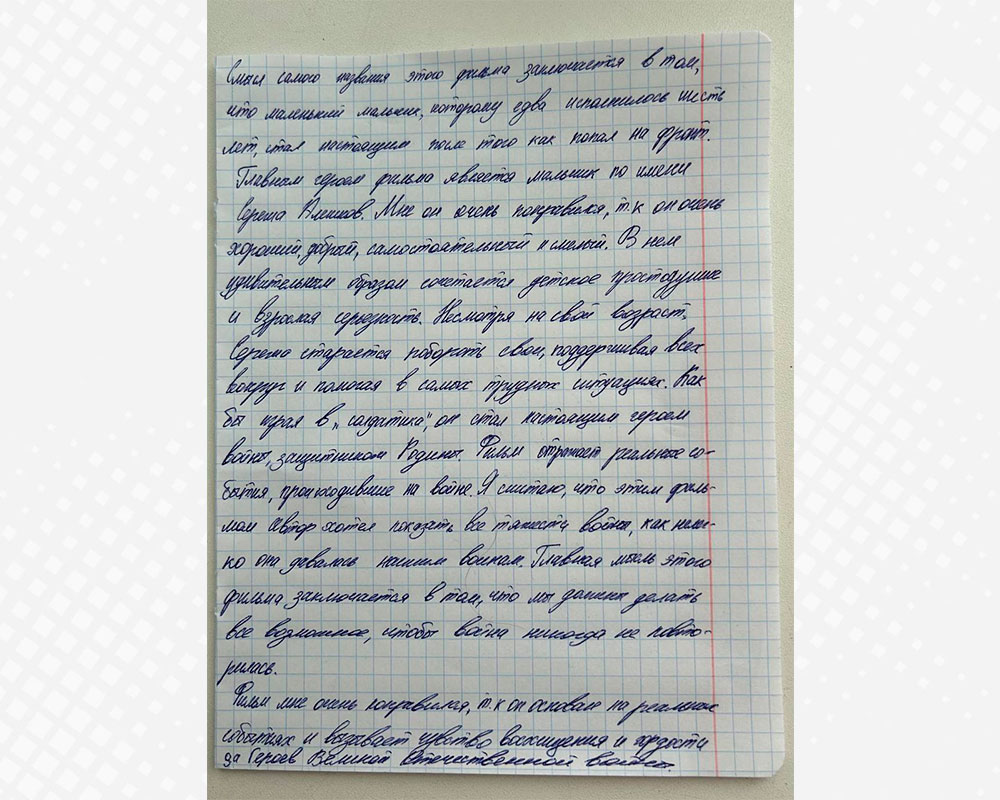 Смысл самого названия этого фильма заключается в том,
что маленький мальчик, которому едва исполнилось шесть
лет, стал настоящим после того как попал на фронт.
Главным героем фильма является мальчик по имени
Сережа Алешков. Мне он очень понравился, т.к он очень
хороший, добрый, самостоятельный и смелый. В нем
удивительным образом сочетается детское простодушие
и взрослая серьезность. Несмотря на свой возраст,
Сережа старается побороть свои, поддерживая всех
вокруг и помогая в самых трудных ситуациях. Как
бы играя в "солдатика", он стал настоящим героем
войны, защитником Родины. Фильм отражает реальные со-
бытия, происходившие на войне. Я считаю, что этим филь-
мом автор хотел показать все тяжести войны, как нелег-
ко она давалась нашим воинам. Главная мысль этого
фильма заключается в том, что мы должны делать
все возможное, чтобы война никогда не повто-
рилась.
Фильм мне очень понравился, т.к он основан на реальных
событиях и вызывает чувство восхищения и гордости
за Героев Великой Отечественной войны.